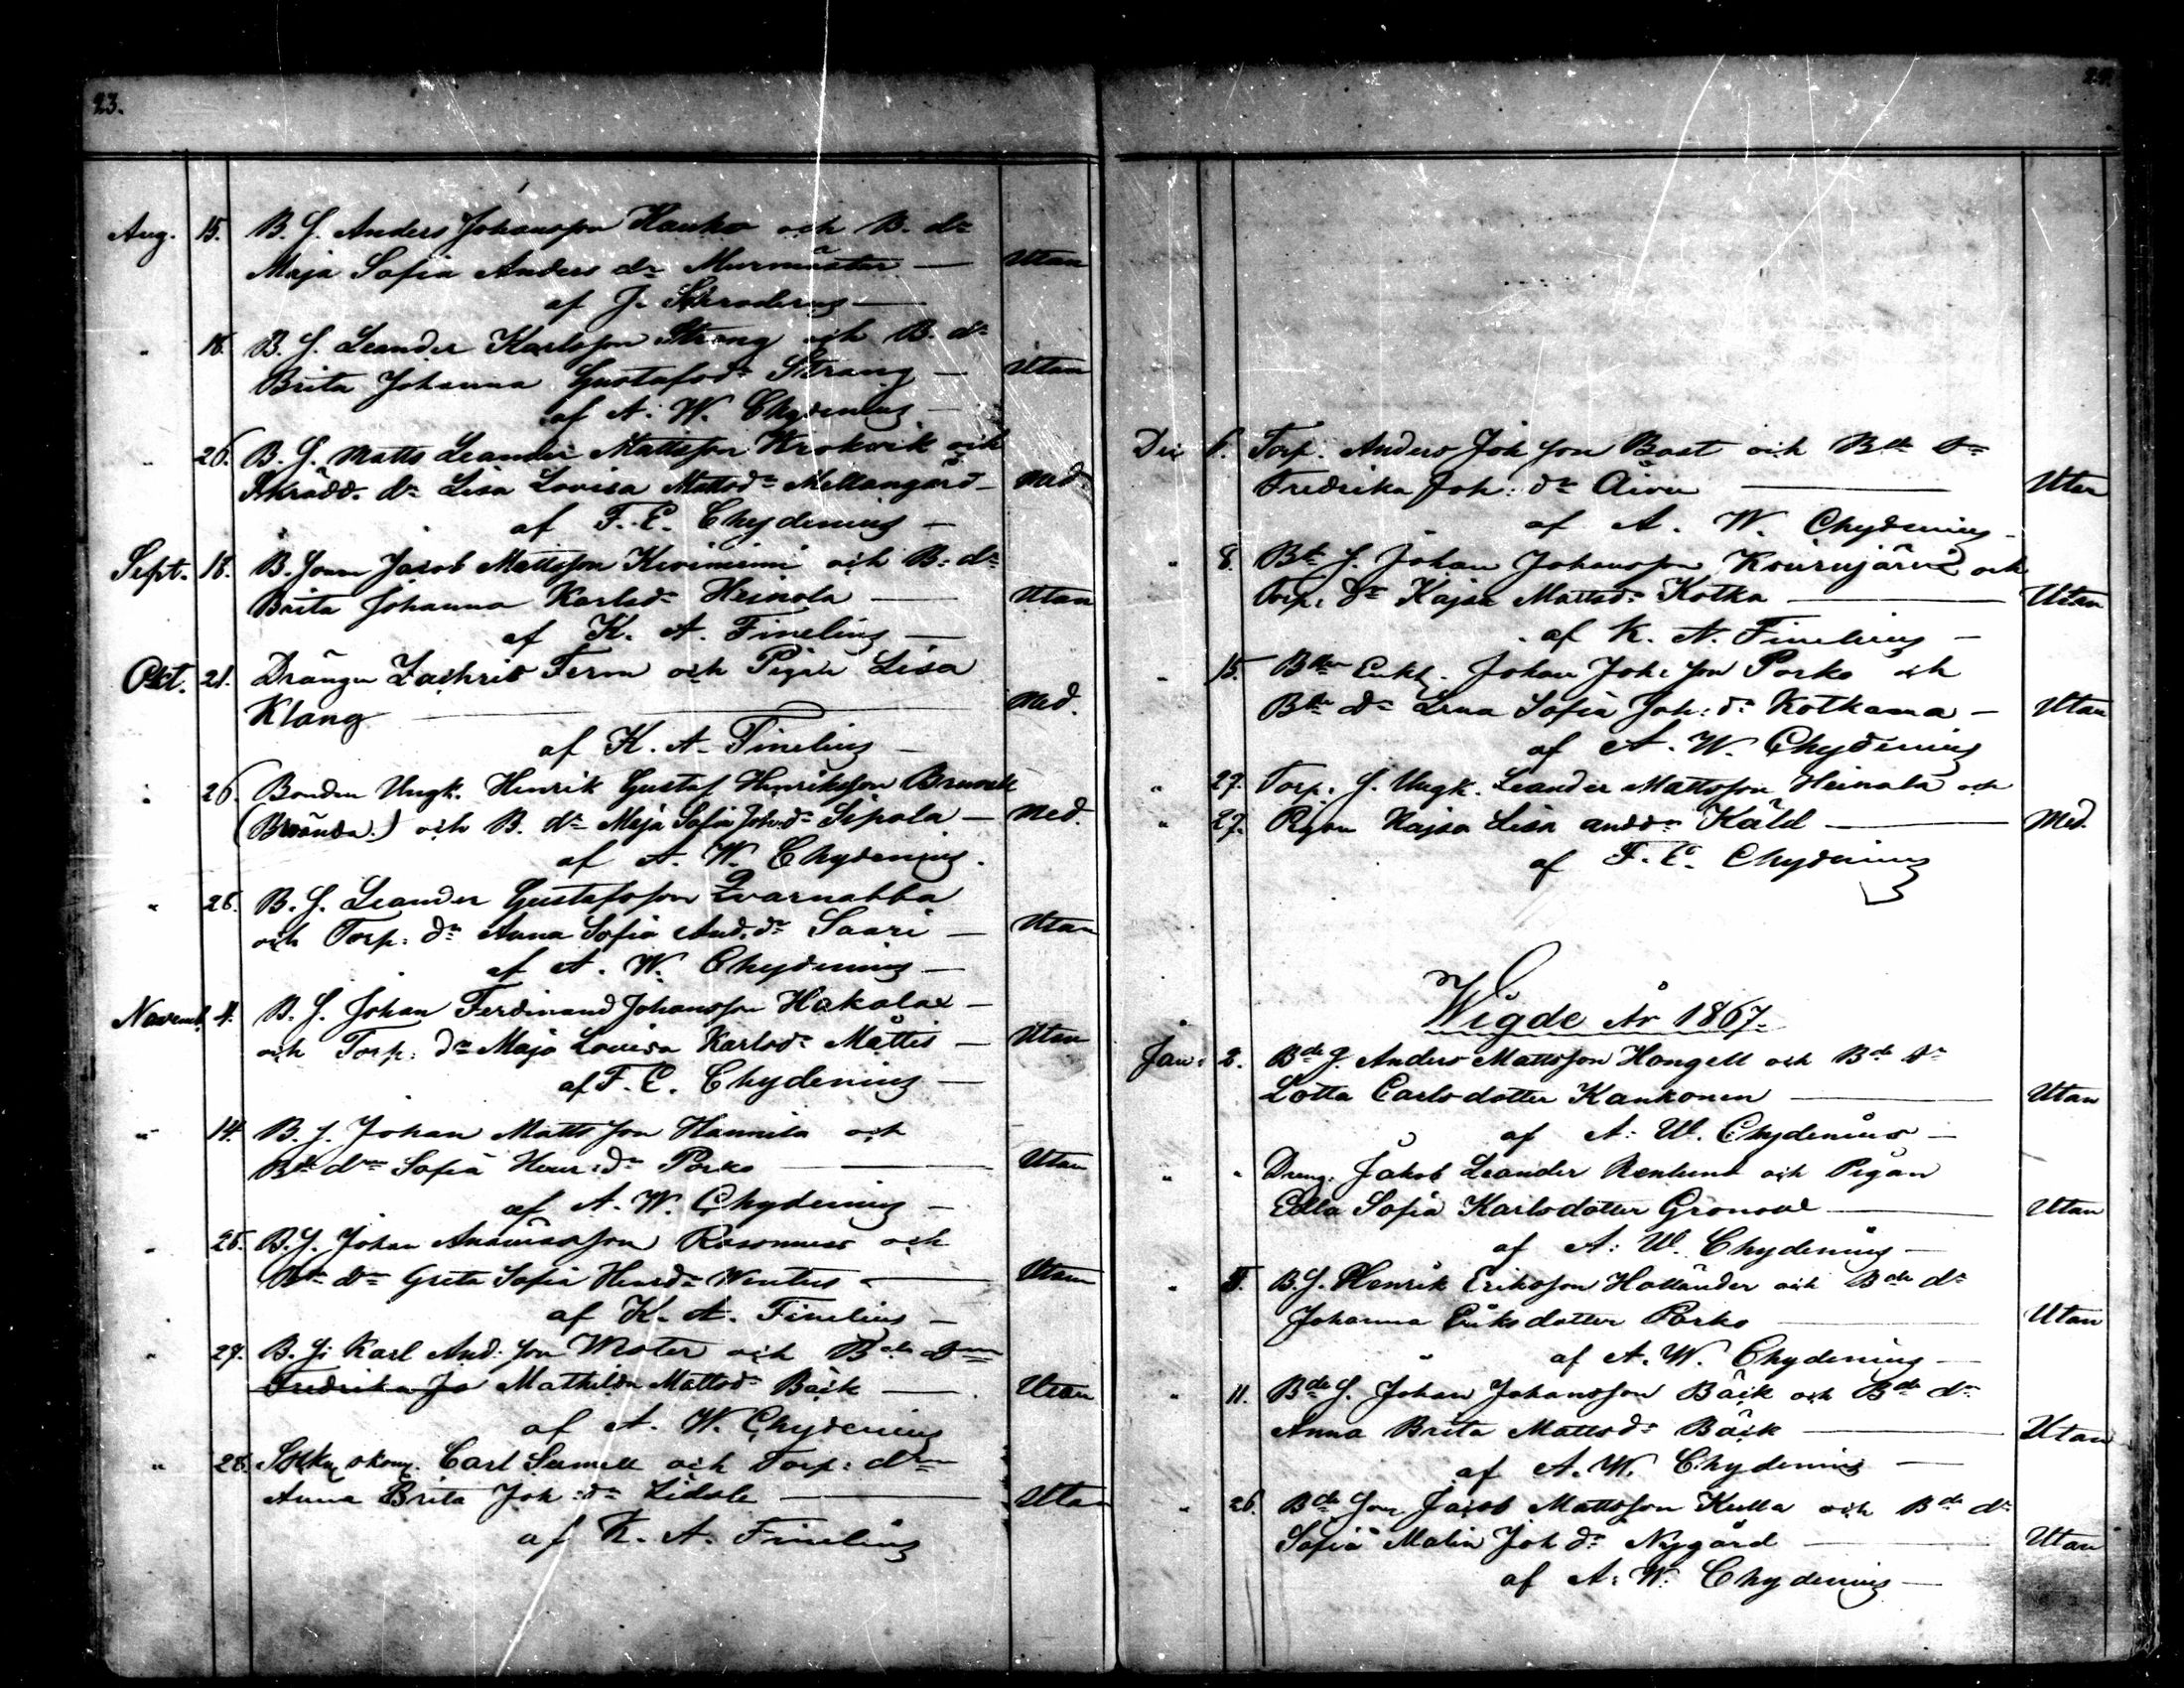 23.
Aug. 15. B. S. Anders Johansson Kanko och B. dr
Maja Sofia Anders dr Murmäster — Utan
af J.
" 18. B. S. Leander Karlsson Strang och B. dr
Brita Johanna Gustafsdr Strang — Utan
af A. W. Chydenius —
" 26. B. S. Matts Leander Mattsson Krokvik och
Skrädd. dr Lisa Lovisa Mattsdr Mellangård — Med
af F. E. Chydenius —
Sept. 18. B. Sonen Jacob Mattsson Kiviniemi och B: dr
Brita Johanna Karlsdr Heinola — Utan
af K. A. Finelius —
Okt. 21. Drängen Zachris Ferm och Pigan Lisa
Klang — Med.
af K. A. Finelius —
" 26. Bonden Ungk. Henrik Gustaf Henriksson
(Brända) och B. dr Maja Sofia Joh:dr Sipola — Med.
af A. W. Chydenius.
" 28. B. S. Leander Gustafsson Qvarnabba
och Torp: dr Anna Sofia And.dr Saari — Utan
af A. W. Chydenius —
Novemb. 4. B. S. Johan Ferdinand Johansson Hakalax —
och Torp: dr Maja Lovisa Karlsdr Mattis — Utan
af F. E. Chydenius —
" 14. B. S. Johan Mattsson Hannila och
Bde drn Sofia Henr:dr Porko — Utan
af A. W. Chydenius —
" 25. B. S. Johan Andersson Rasmus och
Bde drn Greta Sofia Henrdr Wentus — Utan
af K. A. Finelius —
" 27. B. S: Karl And: son och Bde Drn
Fredrika Jo Mathilda Mattsdr Bäck — Utan
af A. W. Chydenius
" 28. Carl och Torp: drn
Anna Brita Joh:dr — Utan
af K. A. Finelius
24.
Dec 6. Torp. Anders Joh son Bast och Bde Dr
Fredrika Joh: dr — Utan
af A. W. Chydenius —
" 8. Bde S. Johan Johansson och
Torp: Dr Kajsa Mattsdr Kotka — Utan
af K. A. Finelius —
" 15. Bden Enkl. Johan Joh: son Porko och
Bde dr Lena Sofia Joh: dr Kotkama — Utan
af A. W. Chydenius
" 27. Torp. S. Ungk. Leander Mattsson Heinola och
" 27. Pigan Kajsa Lisa anddr Käld — Med.
af F. E. Chydenius
Wigde År 1867.
Jan: 2. Bde S. Anders Mattsson Hongell och Bde Dr
Lotta Carlsdotter Kankonen — Utan
af A: W. Chydenius —
" " Dreng. Jakob Leander Renlund och Pigan
Edla Sofia Karlsdotter — Utan
af A: W. Chydenius —
" B. S. Henrik Eriksson Holländer och Bde dr
Johanna Eriksdotter Porko — Utan
af A. W. Chydenius —
" 11. Bde S. Johan Johansson Bäck och Bde dr
Anna Brita Mattsdr Bäck — Utan
af A. W. Chydenius —
" 26. Bde Son Jacob Mattsson Kulla och Bde dr
Sofia Malin Joh dr Nygård — Utan
af A: W. Chydenius —